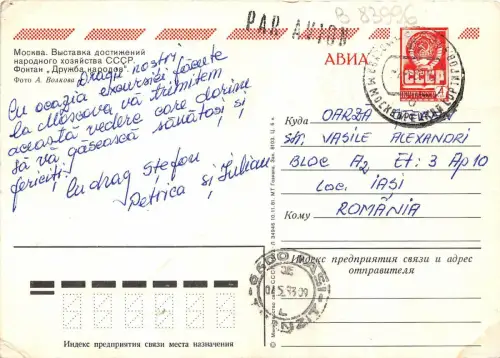 B 83996
PAR AVION
Москва. Выставка достижений
народного хозяйства СССР.
Фонтан „Дружба народов“
Фото А. Волкова
АВИА
СССР
Dragii noștri
Cu ocazia excursiei făcute
la Moscova vă trimitem
această vedere care dorim
să vă găsească sănătoși și
fericiți!
Cu drag Stefan
Petrica și Iulian
Куда OARZA
Str. VASILE ALEXANDRI
BLOC A2 Et: 3 Ap 10
Loc. IASI
Кому ROMÂNIA
Индекс предприятия связи и адрес
отправителя
6600 IASI
Индекс предприятия связи места назначения